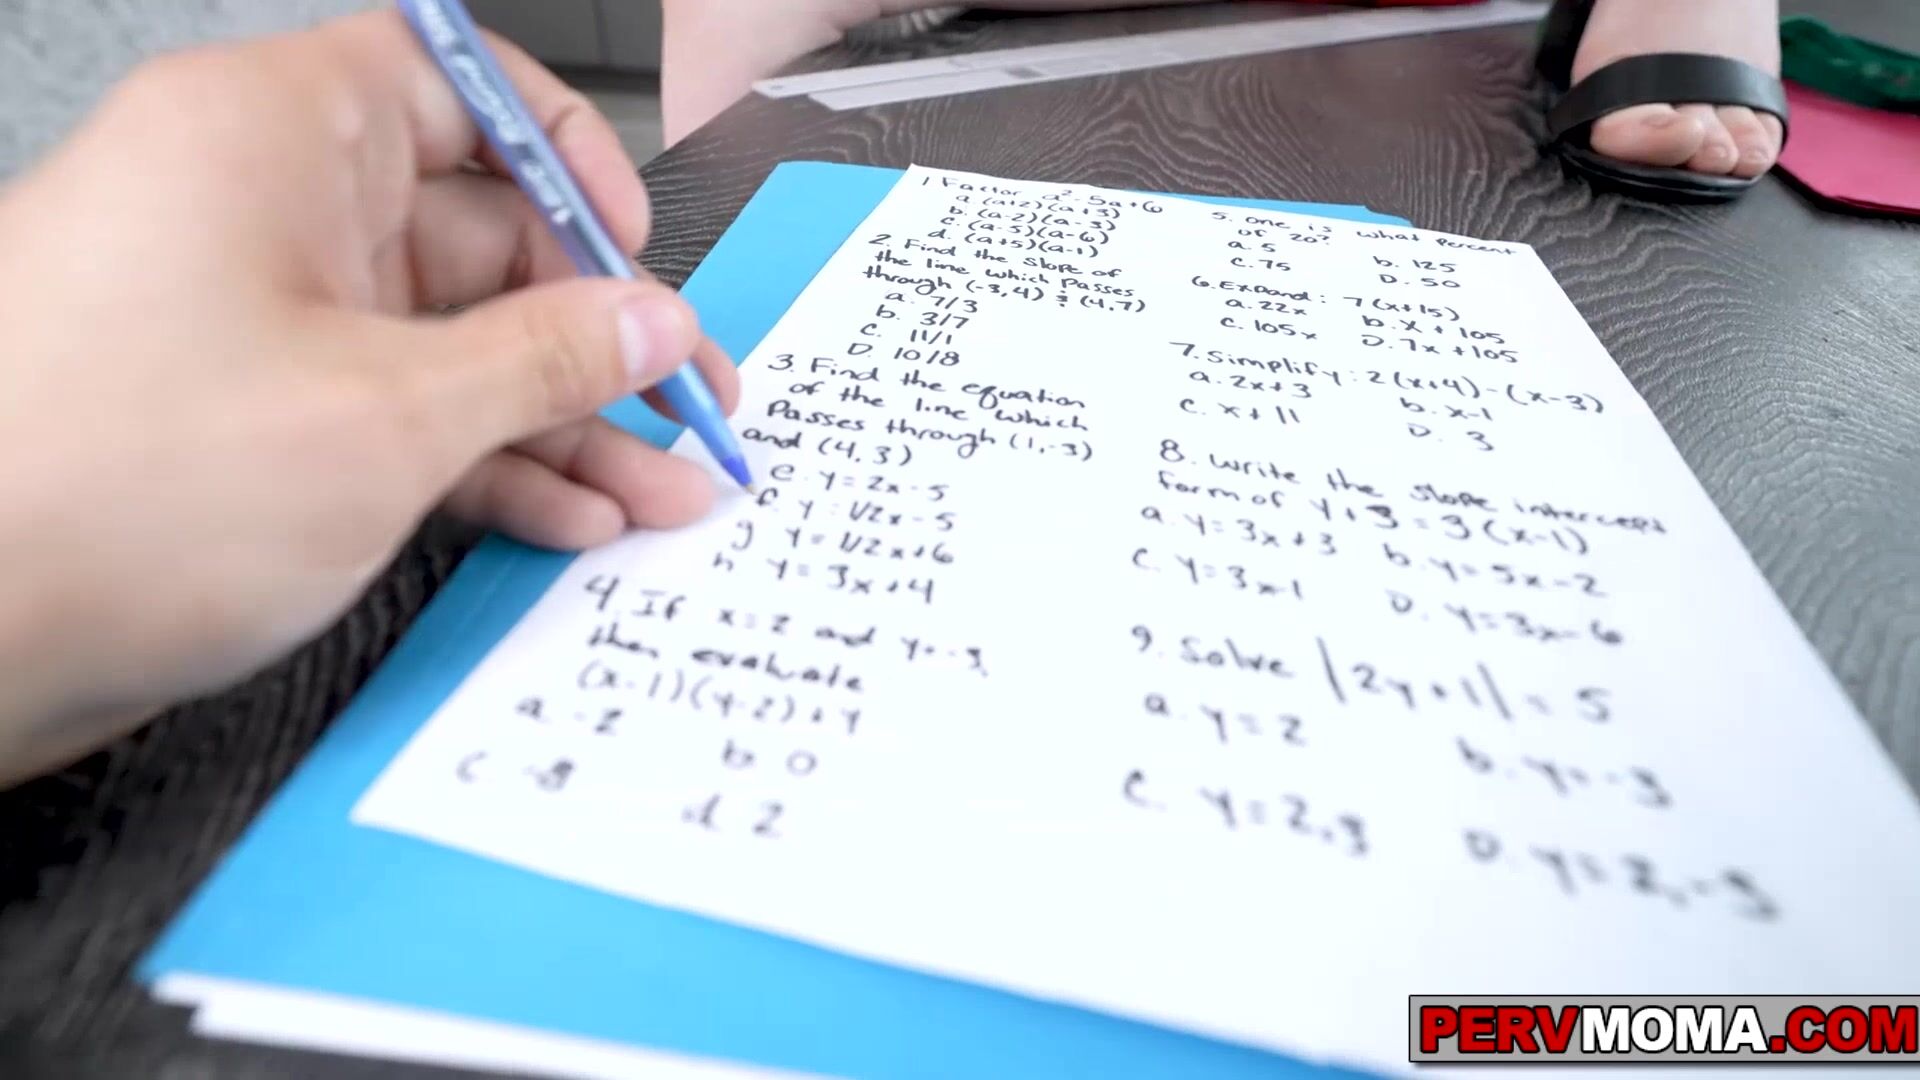 1 Factor a²-5a+6
a (a+2)(a+3)
b. (a-2)(a-3)
c. (a-5)(a-6)
d. (a+5)(a-1)
2. Find the slope of
the line which passes
through (-3,4) & (4,7)
a. 7/3
b. 3/7
c. 11/1
D. 10/8
3. Find the equation
of the line which
Passes through (1,-3)
and (4,3)
e. y=2x-5
f. y=1/2x-5
g y=1/2x+6
h y=3x+4
4. If x=2 and y=-3,
then evaluate
(x-1)(y-2)+y
a. -2
b 0
c. -8
d 2
5. one is what percent
of 20?
a. 5
b. 125
c. 75
D. 50
6. Expand: 7(x+15)
a. 22x
b. x+105
c. 105x
D. 7x+105
7. Simplify: 2(x+4)-(x-3)
a. 2x+3
b. x-1
c. x+11
D. 3
8. write the slope intercept
form of y+3=3(x-1)
a. y=3x+3
b. y=5x-2
c. y=3x-1
D. y=3x-6
9. Solve |2y+1|=5
a. y=2
b. y=-3
c. y=2,3
D. y=2,-3
PERVMOMA.COM